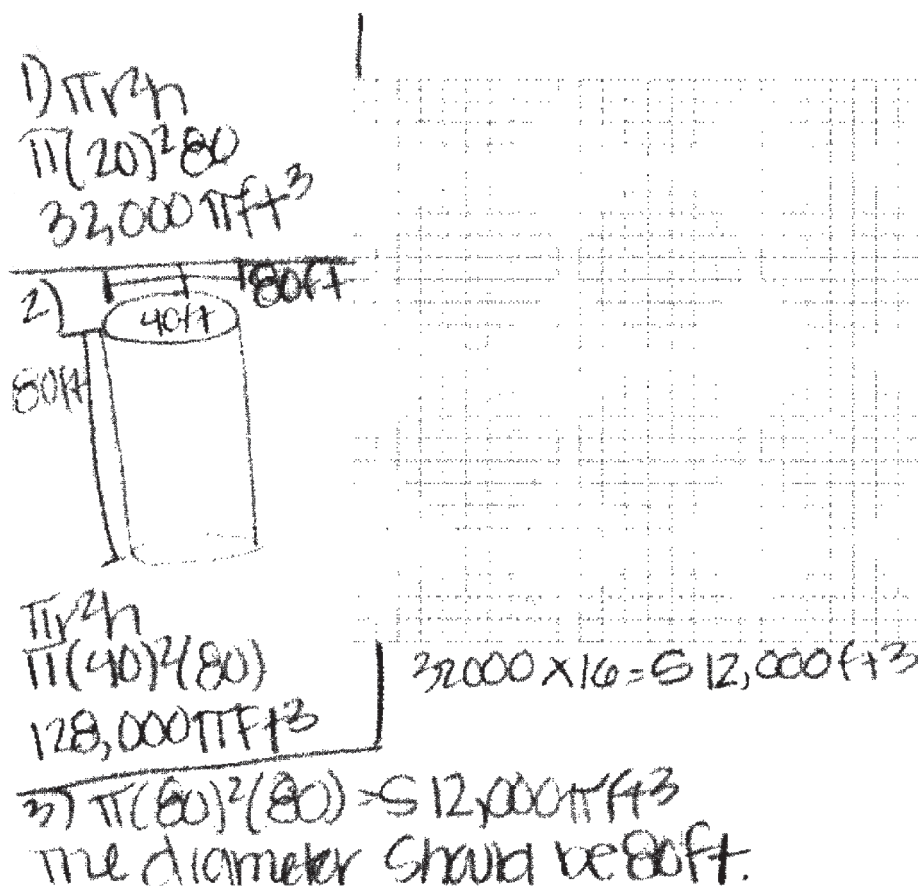 1) πr²h
π(20)²80
32,000πft³
2)
80ft
40ft
80ft
πr²h
π(40)²(80)
128,000πft³
32000 x 16 = 512,000ft³
3) π(80)²(80) = 512,000πft³
The diameter should be 80ft.